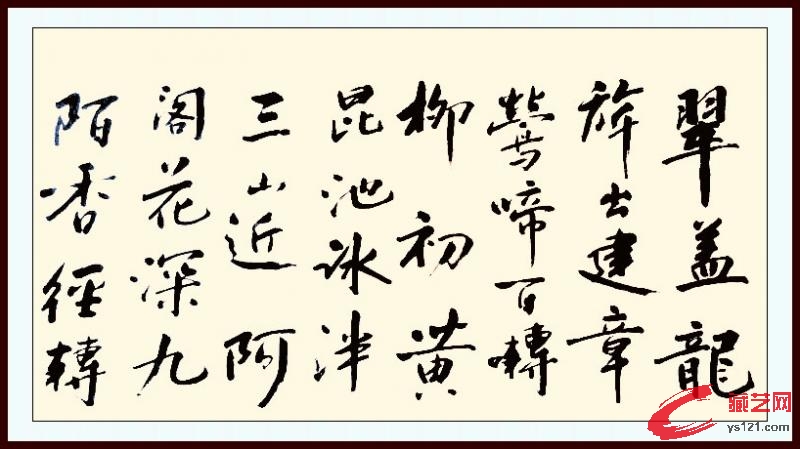 翠盖龍
旂出建章
鶯啼百囀
柳初黄
昆池冰泮
三山近阿
阁花深九
陌香径轉
藏艺网
ys121.com